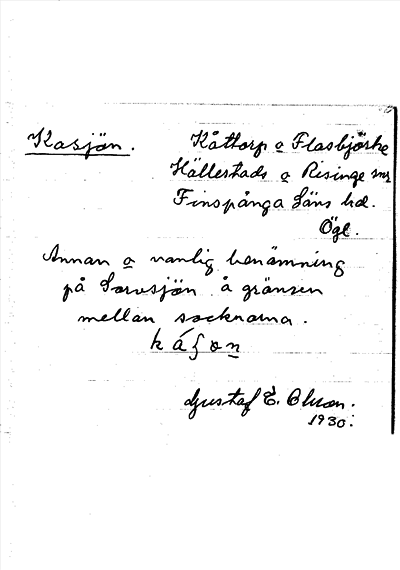 Kasjön.
Kåttorp o Flasbjörke
Hällestads o Risinge snr
Finspånga Läns hd.
Ögl.
Annan o vanlig benämning
på Sarvsjön å gränsen
mellan socknarna.
Gustaf E. Olsson.
1930.